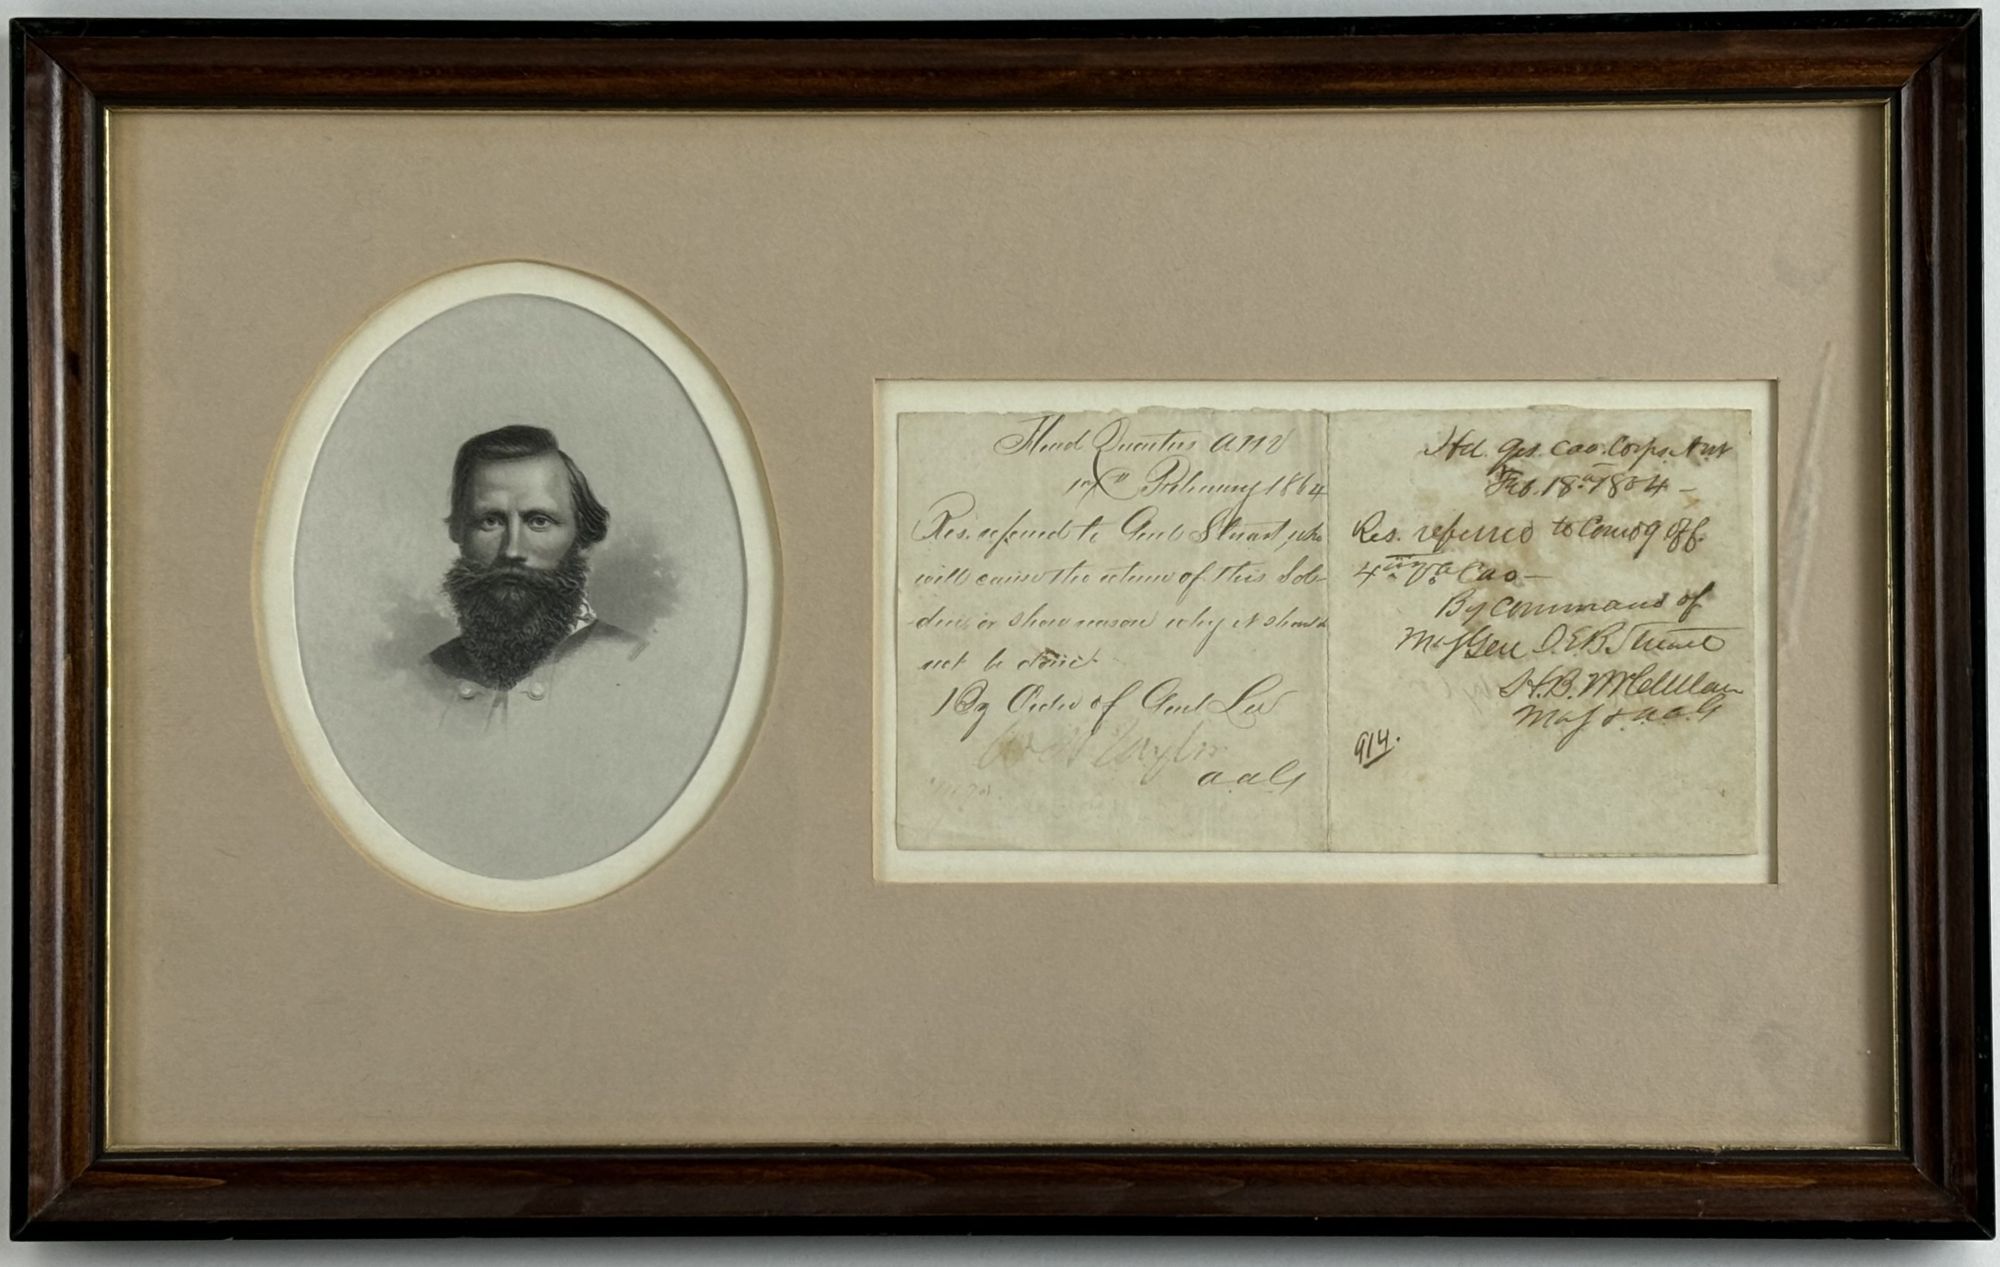 Head Quarters ANV
February 1864
Res. referred to Genl Stuart, who
will cause the return of this Sol-
dier or show reason why it should
not be done
By Order of Genl Lee
W H Taylor
a.a.G
Hd. Qrs. Cav. Corps. A.N.V
Feb. 18th 1864 -
Res. referred to Comdg Off.
4th Va Cav -
By command of
Maj Gen J.E.B. Stuart
H.B. McClellan
Maj & a.a.G
914.